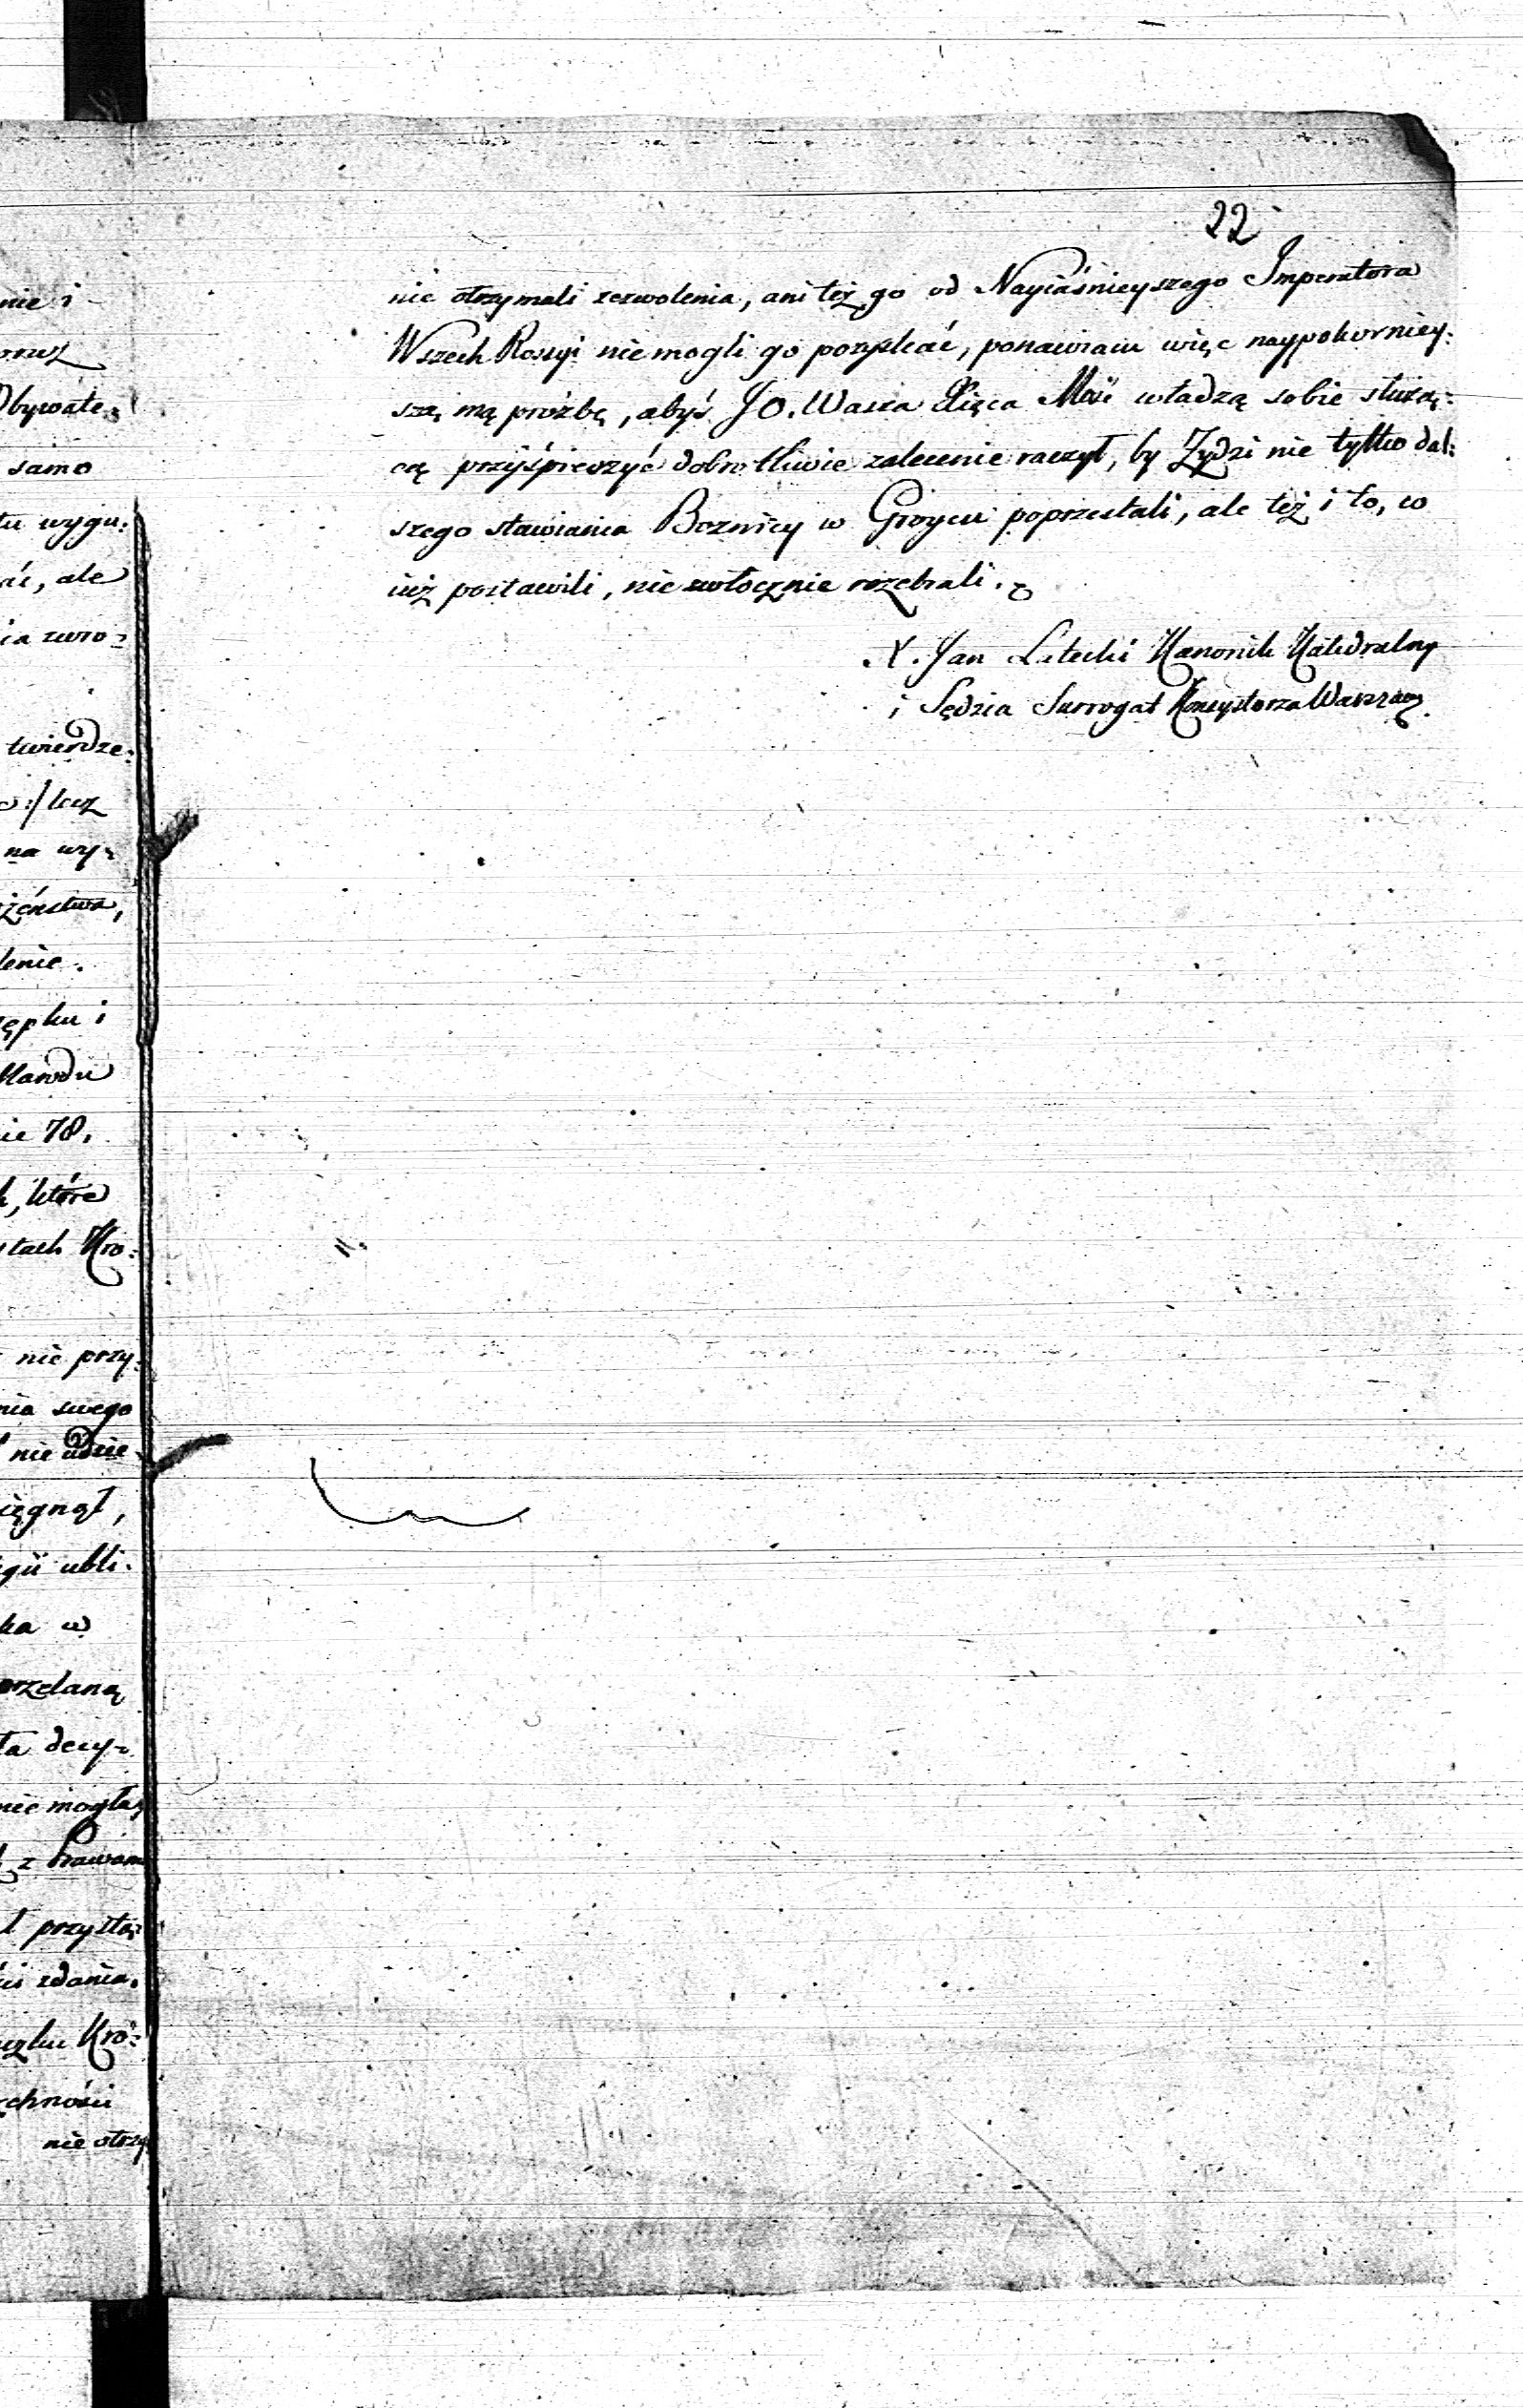 22
nie otrzymali zezwolenia, ani też go od Nayiaśnieyszego Imperatora
Wszech Rossyi nie mogli go pozyskać, ponawiam więc naypokorniey:
szą mą proźbę, abyś JO. Wasza Xiąca Mość władzą sobie służą:
cą przyśpieszyć dobrotliwie zalecenie raczył, by Żydzi nie tylko dal:
szego stawiania Boznicy w Groycu poprzestali, ale też i to, co
iuż postawili, nie zwłocznie rozebrali.
X. Jan Kanonik Katedralny
i Sędzia Surrogat Konsystorza Warszaw.
nie i
Obywate:
samo
tu wygu:
ać, ale
ia zwro:
twierdze:
lecz
na wy:
żeństwa,
lenie.
ępku i
ie 78.
h, które
tach Kro:
nie przy:
nia swego
nie udzie
ięgnął,
gii ubli:
ka w
ła decy:
nie mogła,
z Prawam
ł przysta:
ci zdania.
ązku Kró:
chności
nie otrzy